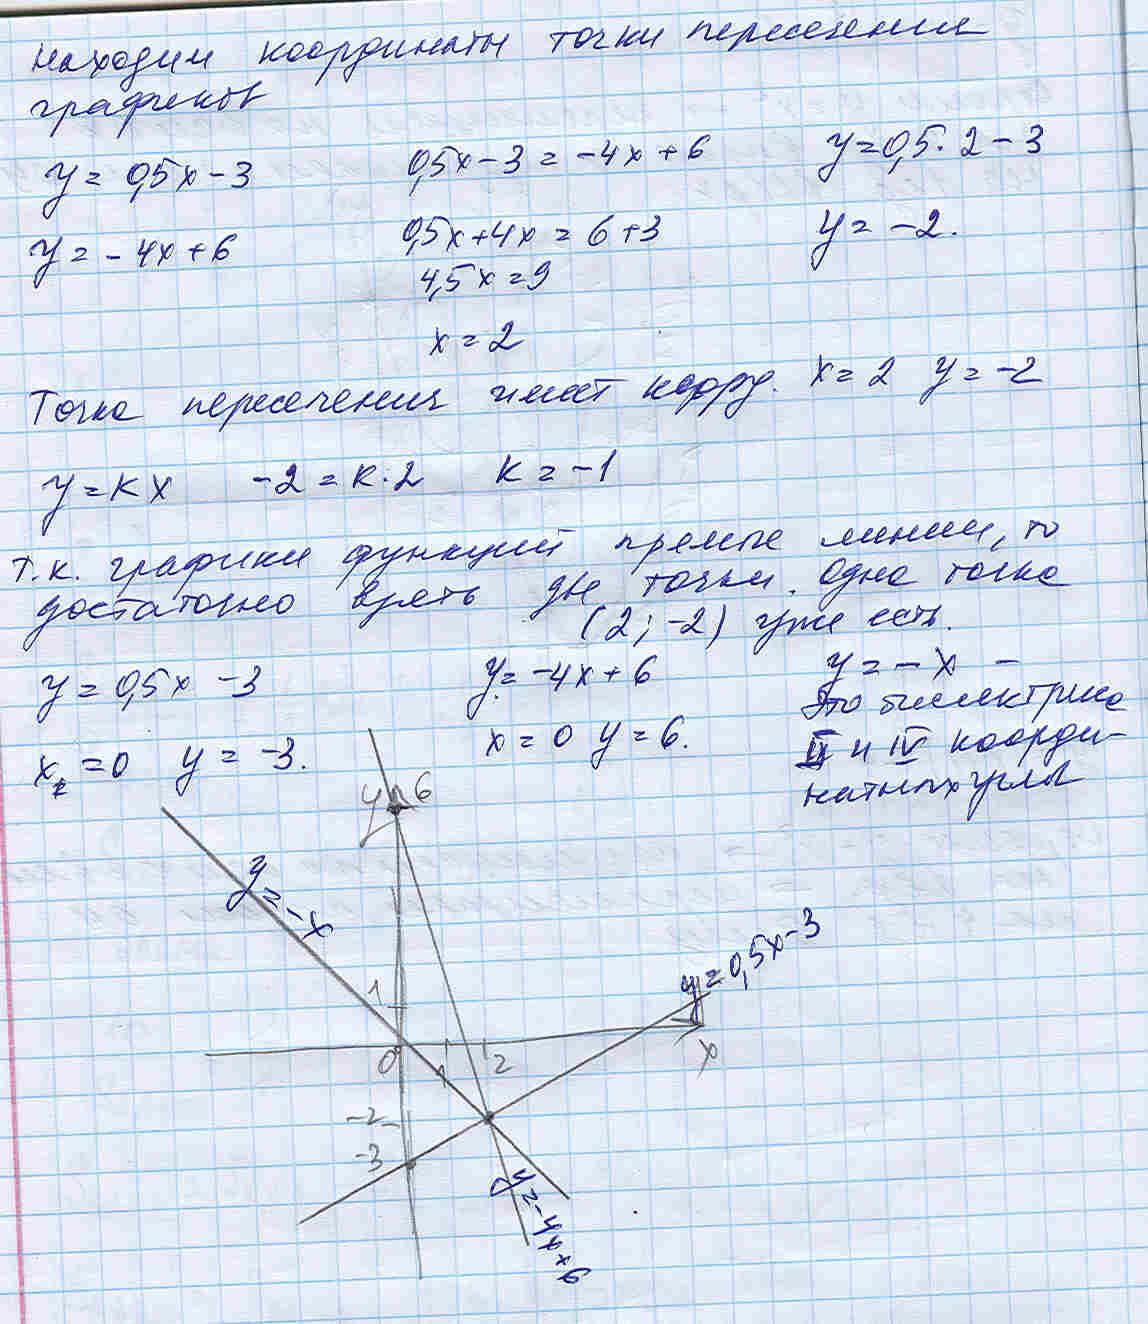 Находим координаты точки пересечения
графиков
y = 0,5x - 3 0,5x - 3 = -4x + 6 y = 0,5 · 2 - 3
y = - 4x + 6 0,5x + 4x = 6 + 3 y = -2.
4,5x = 9
x = 2
Точка пересечения имеет коорд. x = 2 y = -2
y = kx -2 = k · 2 k = -1
т.к. графики функций прямые линии, то
достаточно взять две точки. Одна точка
(2; -2) уже есть.
y = 0,5x - 3 y = -4x + 6 y = - x -
это биссектриса
x = 0 y = -3. x = 0 y = 6. II и IV коорди-
натных углов
y 6
y = -x
y = 0,5x - 3
1
0 1 2 x
-2
-3
y = -4x + 6